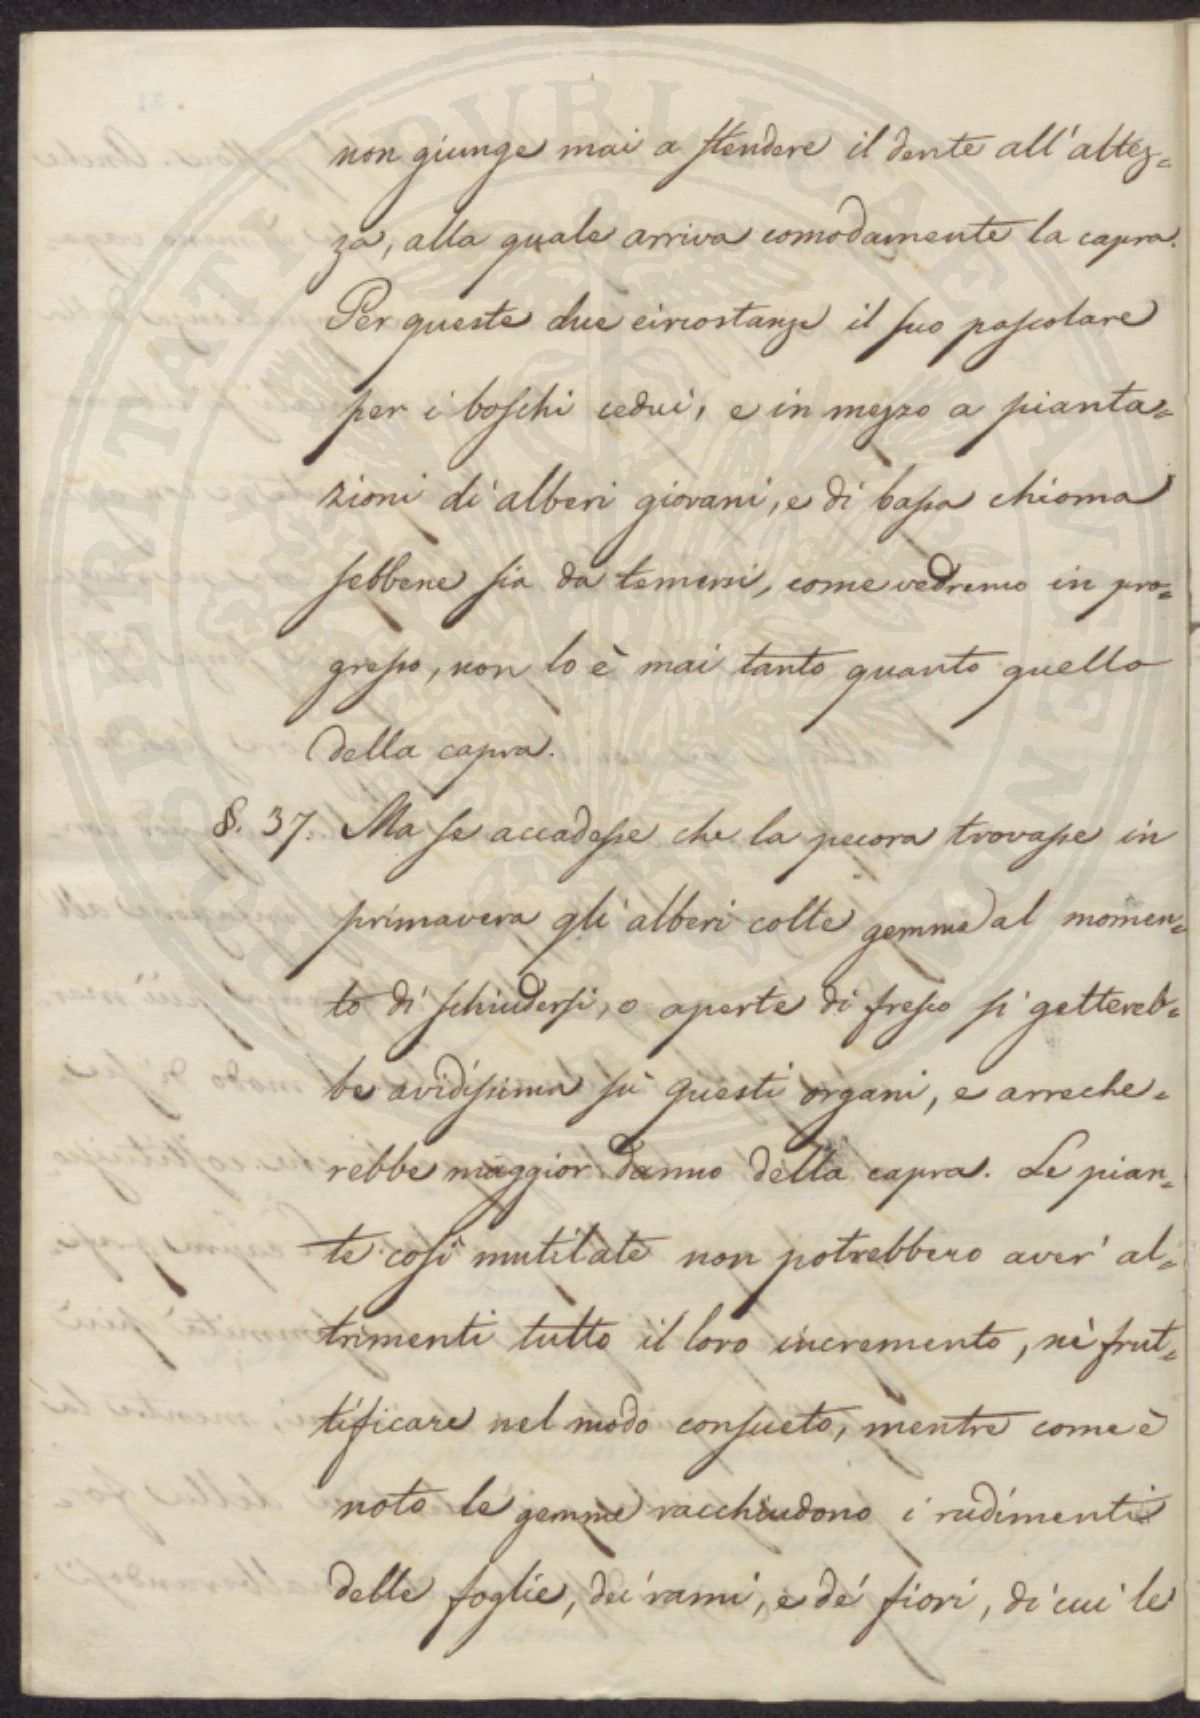 non giunge mai a stendere il dente all'altez=
za, alla quale arriva comodamente la capra.
Per queste due circostanze il suo pascolare
per i boschi cedui, e in mezzo a pianta=
zioni di alberi giovani, e di bassa chioma
sebbene sia da temersi, come vedremo in pro=
gresso, non lo è mai tanto quanto quello
della capra.
§. 37. Ma se accadesse che la pecora trovasse in
primavera gli alberi colle gemme al momen=
to di schiudersi, o aperte di fresco si gettereb=
be avidissima sù questi organi, e arreche=
rebbe maggior danno della capra. Le pian=
te così mutilate non potrebbero aver' al=
trimenti tutto il loro incremento, nè frut=
tificare nel modo consueto, mentre come è
noto le gemme racchiudono i rudimenti
delle foglie, dei rami, e de' fiori, di cui le